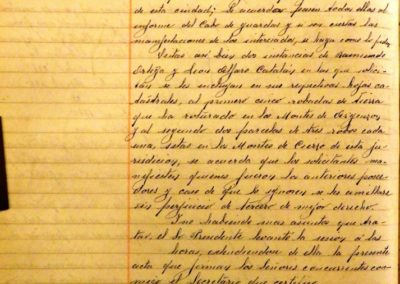 de esta ciudad; se acuerdan pasen todas ellas al
informe del Cabo de guardas y si son ciertas las
manifestaciones de los interesados, se haga como lo piden
Vistas así bien dos instancias de Raimundo
Ortega y León Alfaro Catalán en las que solici-
tan se les incluyan en sus respectivas hojas ca-
tastrales, al primero cinco robadas de tierra
que ha roturado en los Montes de Argenzon
y al segundo dos parcelas de tres robos cada
una, sitas en los Montes de Cierzo de esta ju-
risdicion, se acuerda que los solicitantes ma-
nifiesten quienes fueron los anteriores posee-
dores y caso de que lo ignoren se les amillare
sin perjuicio de tercero de mejor derecho.
Y no habiendo mas asuntos que tra-
tar, el Sr Presidente levantó la sesion a las
horas, extendiendose de ella la presente
acta que firman los señores concurrentes con-
migo el Secretario que certifico